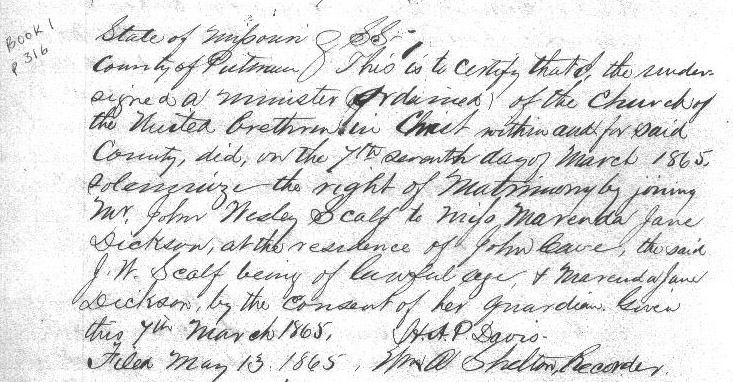 BOOK 1
P 316
State of Missouri } SS.
County of Putnam } This is to certify that I, the under-
signed a minister (Ordained) of the Church of
the United Brethren in Christ within and for said
County, did, on the 7th seventh day of March 1865.
Solemnize the right of Matrimony by joining
Mr. John Wesley Scalf to Miss Marenda Jane
Dickson, at the residence of John Cave, the said
J. W. Scalf being of lawful age, & Marenda Jane
Dickson, by the Consent of her guardian. Given
this 7th March 1865. H. A. P. Davis.
Filed May 13. 1865, Wm A Shelton, Recorder.